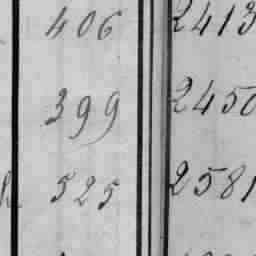 406 2413
399 2450
525 2581